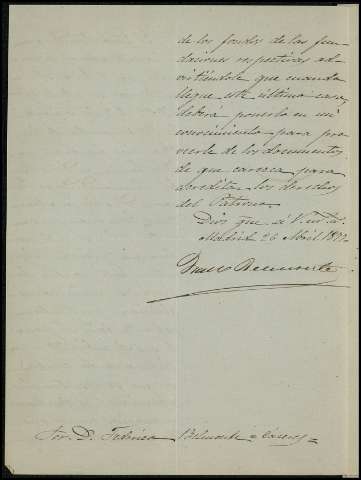 de los fondos de las fun
daciones respectivas ad
virtiéndole que cuando
llegue este último caso,
deberá ponerlo en mi
conocimiento para pro
veerle de los documentos
de que carezca para
acreditar los derechos
del Patrono.
Dios gue. á V. m. as.
Madrid 26 Abril 18
Belmonte
Sor. D. Federico Belmonte = Cáceres =